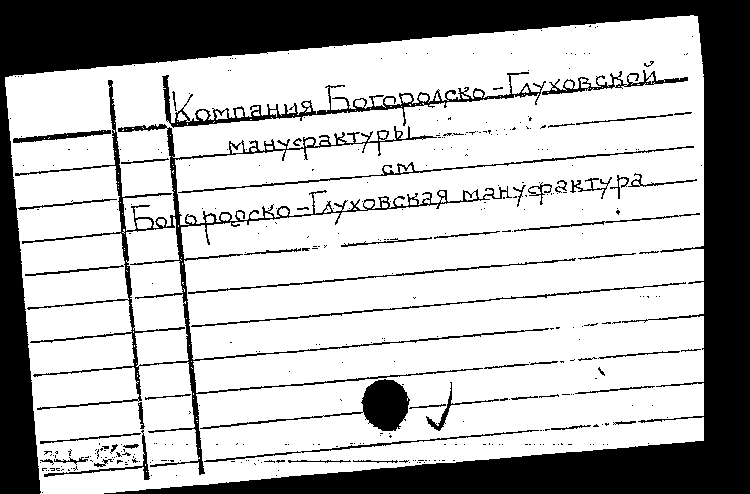 Компания Богородско-Глуховской
мануфактуры
см
Богородско-Глуховская мануфактура